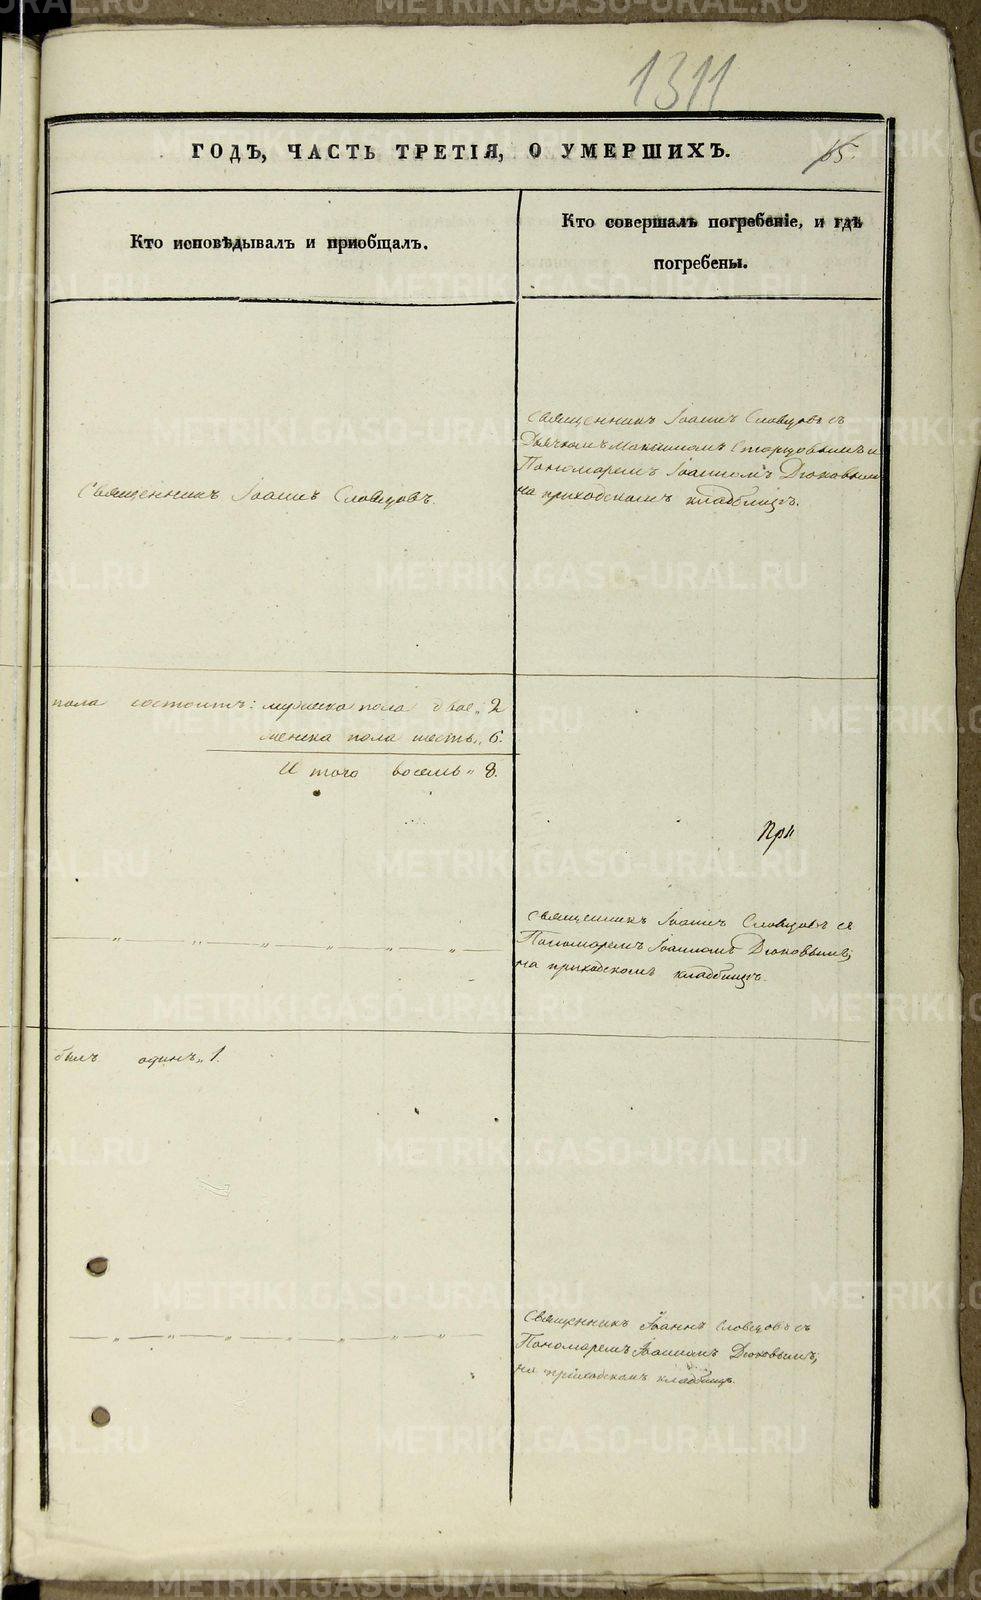 1311
ГОДЪ, ЧАСТЬ ТРЕТІЯ, О УМЕРШИХЪ.
65
Кто исповѣдывалъ и пріобщалъ.
Кто совершалъ погребеніе, и гдѣ
погребены.
Священникъ Іоаннъ Словцовъ съ
Дьячкомъ Максимомъ Старцовымъ и
Пономаремъ Іоанномъ Дюковымъ
на приходскомъ кладбищѣ.
Священникъ Іоаннъ Словцовъ.
пола состоитъ: мужеска пола двое „ 2
женска пола шесть „ 6.
И того восемь „ 8.
При
Священникъ Іоаннъ Словцовъ съ
Пономаремъ Іоанномъ Дюковымъ,
на приходскомъ кладбищѣ.
былъ одинъ „ 1.
Священникъ Іоаннъ Словцовъ съ
Пономаремъ Іоанномъ Дюковымъ,
на приходскомъ кладбищѣ.
METRIKI.GASO-URAL.RU